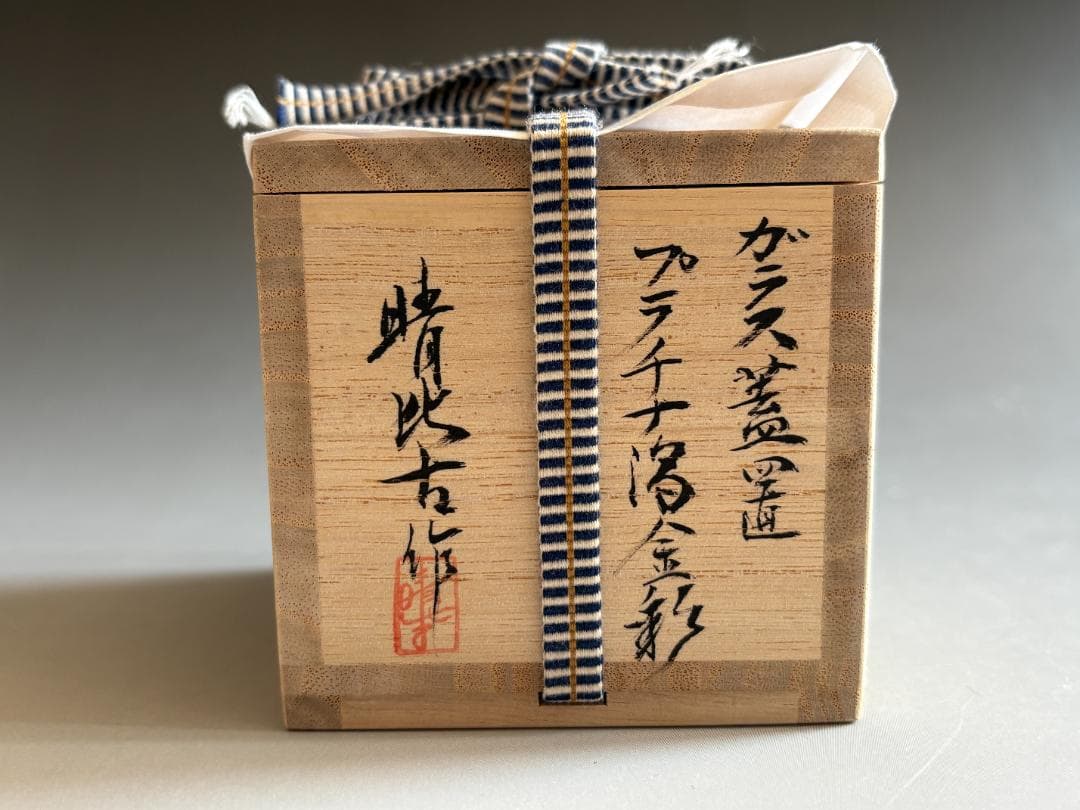 ガラス蓋置
プラチナ渦金彩
晴比古作